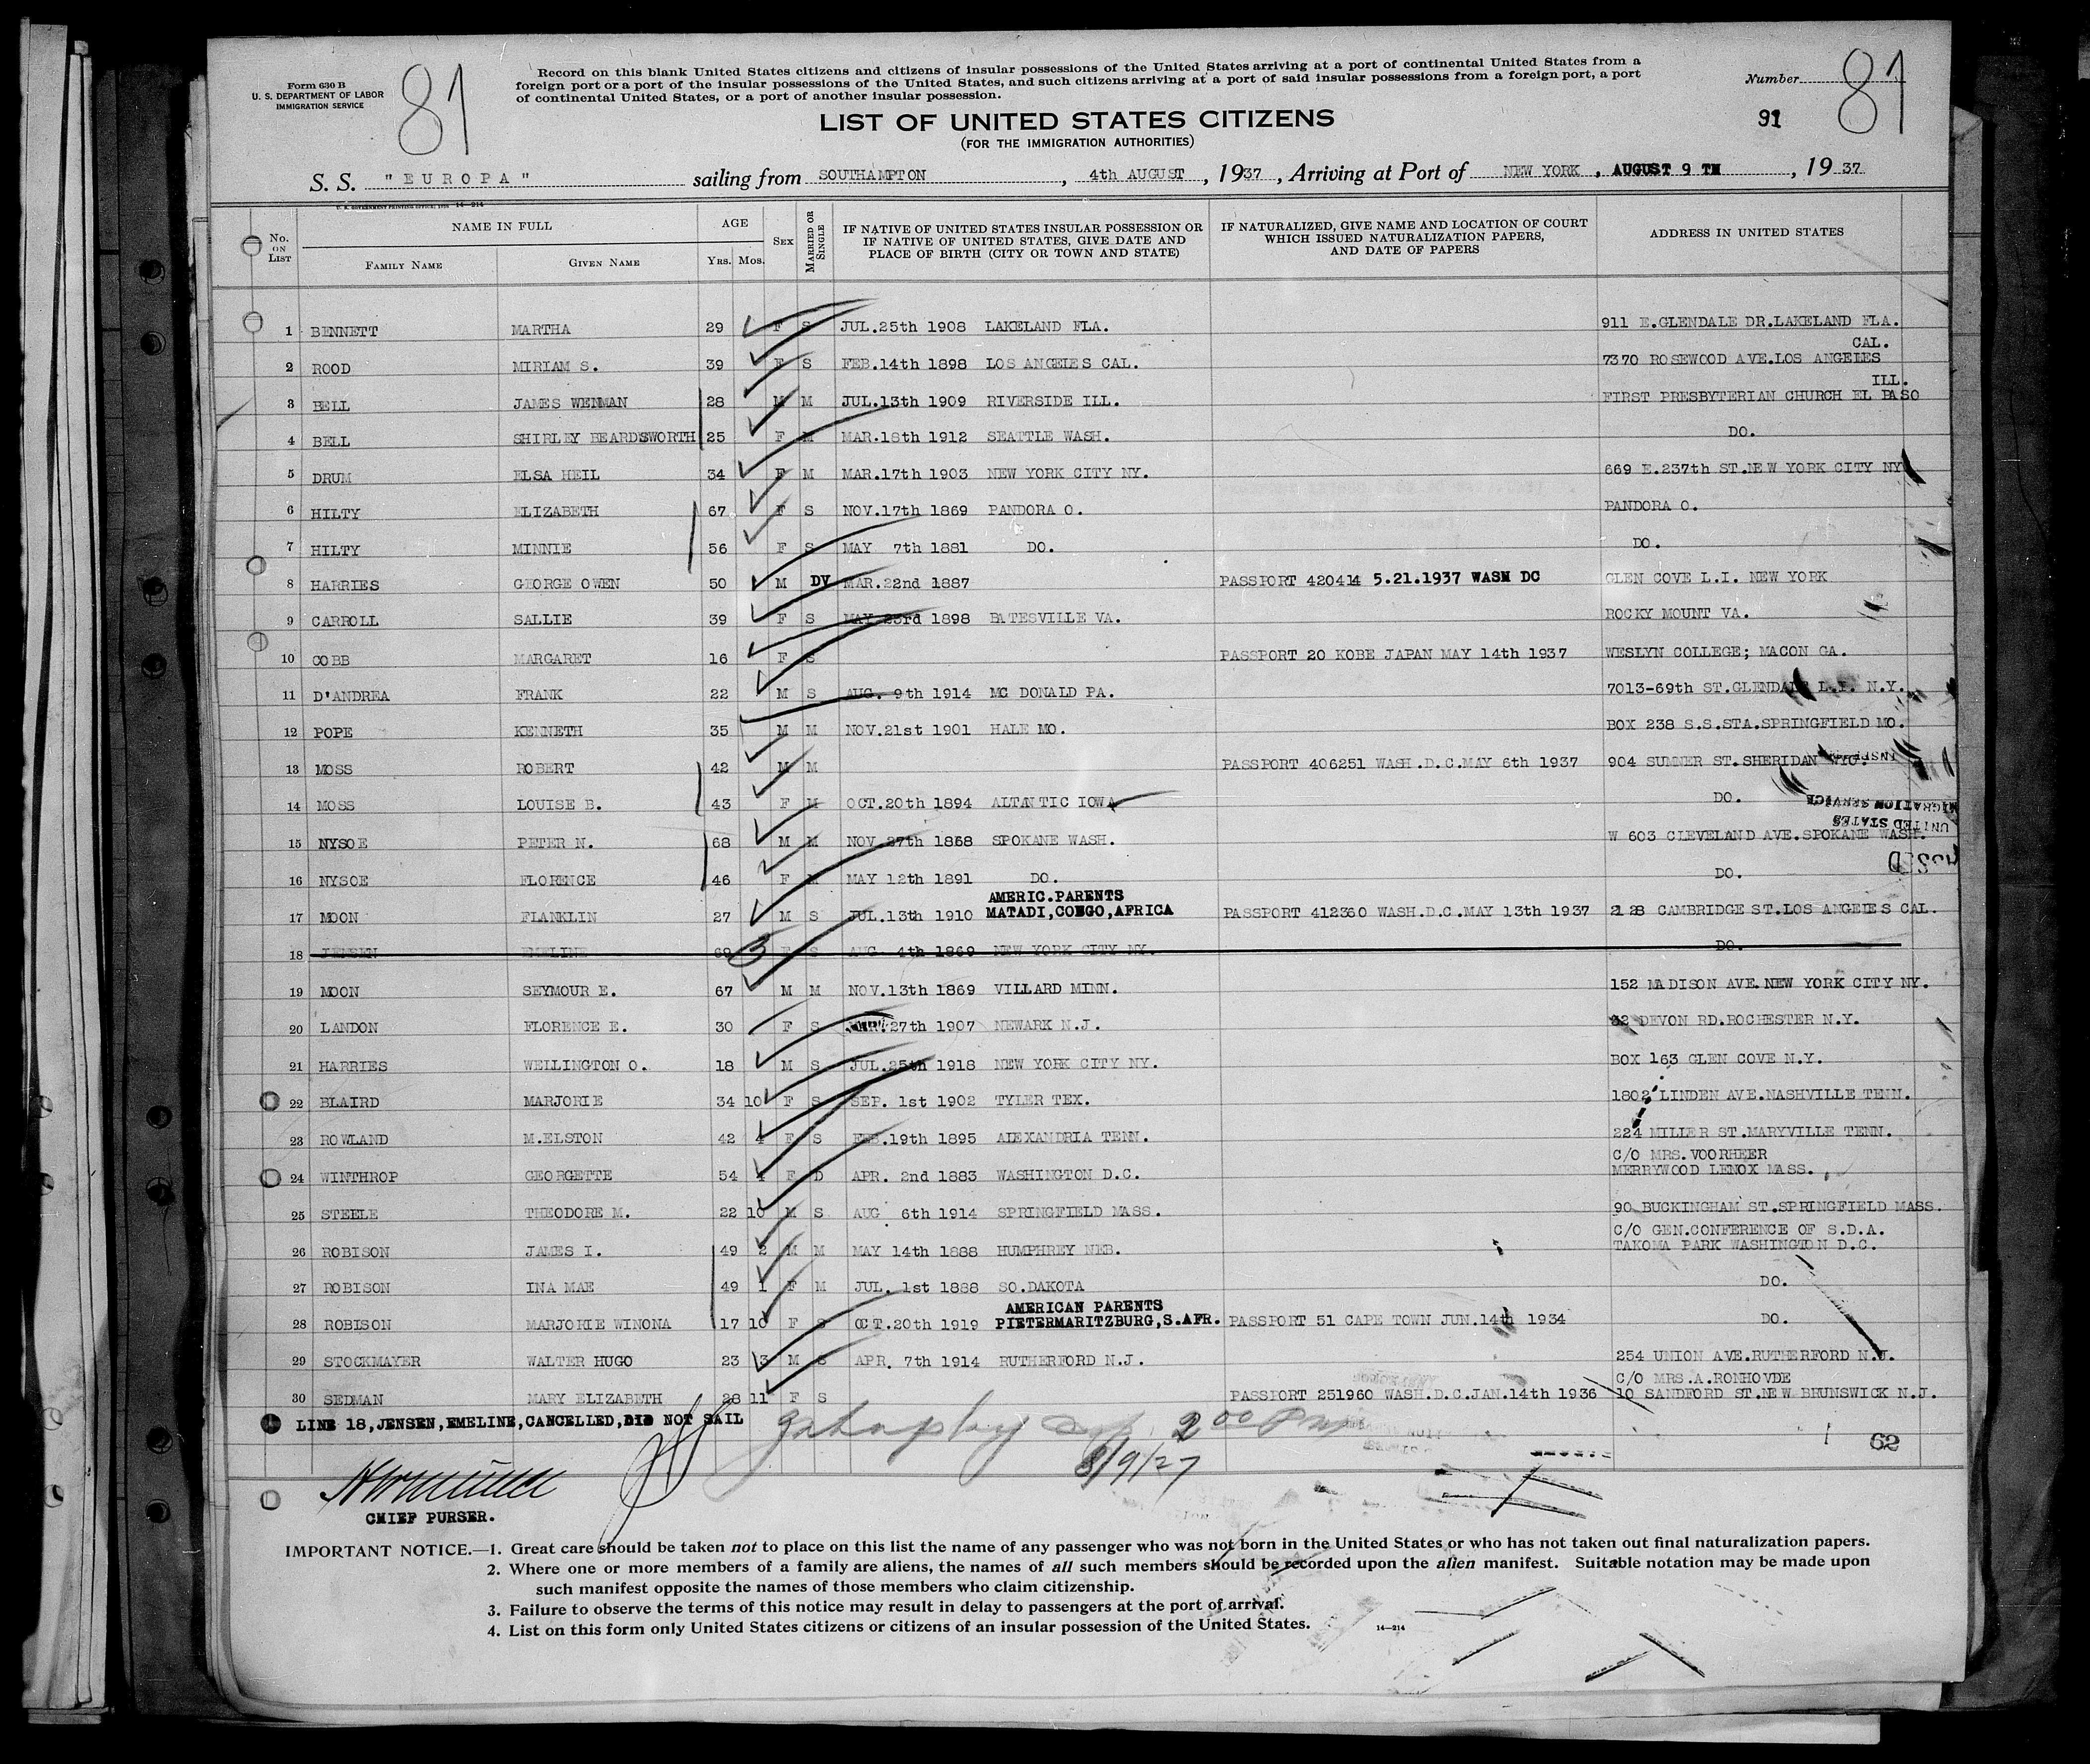 Form 630 B
U. S. DEPARTMENT OF LABOR
IMMIGRATION SERVICE
81
Record on this blank United States citizens and citizens of insular possessions of the United States arriving at a port of continental United States from a
foreign port or a port of the insular possessions of the United States, and such citizens arriving at a port of said insular possessions from a foreign port, a port
of continental United States, or a port of another insular possession.
Number 81
91
LIST OF UNITED STATES CITIZENS
(FOR THE IMMIGRATION AUTHORITIES)
S. S. "EUROPA" sailing from SOUTHAMPTON, 4th AUGUST, 1937, Arriving at Port of NEW YORK, AUGUST 9 TH, 1937
U. S. GOVERNMENT PRINTING OFFICE 14—214
No. ON LIST
NAME IN FULL
FAMILY NAME GIVEN NAME
AGE
YRS. MOS.
SEX
MARRIED OR SINGLE
IF NATIVE OF UNITED STATES INSULAR POSSESSION OR
IF NATIVE OF UNITED STATES, GIVE DATE AND
PLACE OF BIRTH (CITY OR TOWN AND STATE)
IF NATURALIZED, GIVE NAME AND LOCATION OF COURT
WHICH ISSUED NATURALIZATION PAPERS,
AND DATE OF PAPERS
ADDRESS IN UNITED STATES
1 BENNETT MARTHA 29 F S JUL.25th 1908 LAKELAND FLA. 911 E.GLENDALE DR.LAKELAND FLA.
CAL.
2 ROOD MIRIAM S. 39 F S FEB.14th 1898 LOS ANGELES CAL. 7370 ROSEWOOD AVE.LOS ANGELES
ILL.
3 BELL JAMES WENMAN 28 M M JUL.13th 1909 RIVERSIDE ILL. FIRST PRESBYTERIAN CHURCH EL PASO
4 BELL SHIRLEY BEARDSWORTH 25 F M MAR.18th 1912 SEATTLE WASH. DO.
5 DRUM ELSA HEIL 34 F M MAR.17th 1903 NEW YORK CITY NY. 669 E.237th ST.NEW YORK CITY NY
6 HILTY ELIZABETH 67 F S NOV.17th 1869 PANDORA O. PANDORA O.
7 HILTY MINNIE 56 F S MAY 7th 1881 DO. DO.
8 HARRIES GEORGE OWEN 50 M DV MAR.22nd 1887 PASSPORT 420414 5.21.1937 WASH DC GLEN COVE L.I. NEW YORK
9 CARROLL SALLIE 39 F S MAY 23rd 1898 BATESVILLE VA. ROCKY MOUNT VA.
10 COBB MARGARET 16 F S PASSPORT 20 KOBE JAPAN MAY 14th 1937 WESLYN COLLEGE; MACON GA.
11 D'ANDREA FRANK 22 M S AUG. 9th 1914 MC DONALD PA. 7013-69th ST.GLENDALE L.I. N.Y.
12 POPE KENNETH 35 M M NOV.21st 1901 HALE MO. BOX 238 S.S.STA.SPRINGFIELD MO.
13 MOSS ROBERT 42 M M PASSPORT 406251 WASH.D.C.MAY 6th 1937 904 SUMNER ST.SHERIDAN WYO.
14 MOSS LOUISE B. 43 F M OCT.20th 1894 ALTANTIC IOWA DO.
15 NYSOE PETER N. 68 M M NOV 27th 1868 SPOKANE WASH. W 603 CLEVELAND AVE.SPOKANE WASH.
16 NYSOE FLORENCE 46 F M MAY 12th 1891 DO. DO.
AMERIC.PARENTS
17 MOON FLANKLIN 27 M S JUL.13th 1910 MATADI,CONGO,AFRICA PASSPORT 412360 WASH.D.C.MAY 13th 1937 2128 CAMBRIDGE ST.LOS ANGELES CAL.
18 JENSEN EMELINE 69 F S AUG. 4th 1869 NEW YORK CITY NY. DO.
19 MOON SEYMOUR E. 67 M M NOV.13th 1869 VILLARD MINN. 152 MADISON AVE.NEW YORK CITY NY.
20 LANDON FLORENCE E. 30 F S 27th 1907 NEWARK N.J. 32 DEVON RD.ROCHESTER N.Y.
21 HARRIES WELLINGTON O. 18 M S JUL.25th 1918 NEW YORK CITY NY. BOX 163 GLEN COVE N.Y.
22 BLAIRD MARJORIE 34 10 F S SEP. 1st 1902 TYLER TEX. 1802 LINDEN AVE.NASHVILLE TENN.
23 ROWLAND M.ELSTON 42 4 F S FEB.19th 1895 ALEXANDRIA TENN. 224 MILLER ST.MARYVILLE TENN.
C/O MRS.VOORHEER
24 WINTHROP GEORGETTE 54 4 F D APR. 2nd 1883 WASHINGTON D.C. MERRYWOOD LENOX MASS.
25 STEELE THEODORE M. 22 10 M S AUG 6th 1914 SPRINGFIELD MASS. 90 BUCKINGHAM ST.SPRINGFIELD MASS.
C/O GEN.CONFERENCE OF S.D.A.
26 ROBISON JAMES I. 49 2 M M MAY 14th 1888 HUMPHREY NEB. TAKOMA PARK WASHINGTON D.C.
27 ROBISON INA MAE 49 1 F M JUL. 1st 1888 SO.DAKOTA DO.
AMERICAN PARENTS
28 ROBISON MARJORIE WINONA 17 10 F S OCT.20th 1919 PIETERMARITZBURG,S.AFR. PASSPORT 51 CAPE TOWN JUN.14th 1934 DO.
29 STOCKMAYER WALTER HUGO 23 3 M S APR. 7th 1914 RUTHERFORD N.J. 254 UNION AVE.RUTHERFORD N.J.
C/O MRS.A.RONHOVDE
30 SEDMAN MARY ELIZABETH 28 11 F S PASSPORT 251960 WASH.D.C.JAN.14th 1936 10 SANDFORD ST.NEW BRUNSWICK N.J.
LINE 18,JENSEN,EMELINE,CANCELLED,DID NOT SAIL
2 00 PM
8/9/27
62
CHIEF PURSER.
IMPORTANT NOTICE.—1. Great care should be taken not to place on this list the name of any passenger who was not born in the United States or who has not taken out final naturalization papers.
2. Where one or more members of a family are aliens, the names of all such members should be recorded upon the alien manifest. Suitable notation may be made upon
such manifest opposite the names of those members who claim citizenship.
3. Failure to observe the terms of this notice may result in delay to passengers at the port of arrival.
4. List on this form only United States citizens or citizens of an insular possession of the United States.
14—214